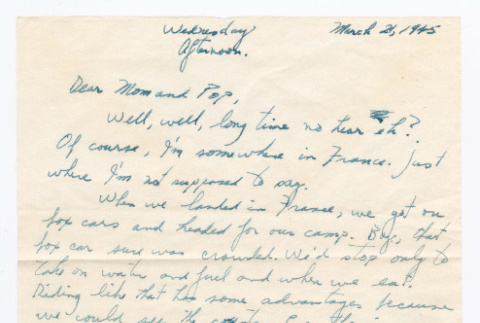 Wednesday March 21, 1945
Afternoon.
Dear Mom and Pop,
Well, well, long time no hear eh?
Of course, I'm somewhere in France. Just
where I'm not supposed to say.
When we landed in France, we got on
box cars and headed for our camp. Boy, that
box car sure was crowded. We'd stop only to
take on water and fuel and when we eat.
Riding like that has some advantages because
we could see the